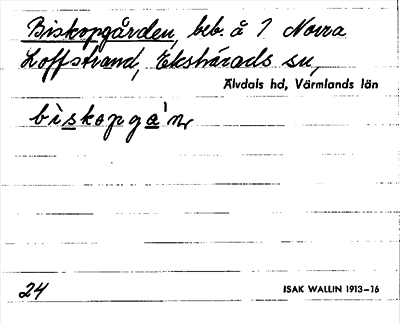 Biskopgården, beb. å 1 Norra
Loffstrand, Ekshärads sn,
Älvdals hd, Värmlands län
biskopgá'n
24
ISAK WALLIN 1913–16